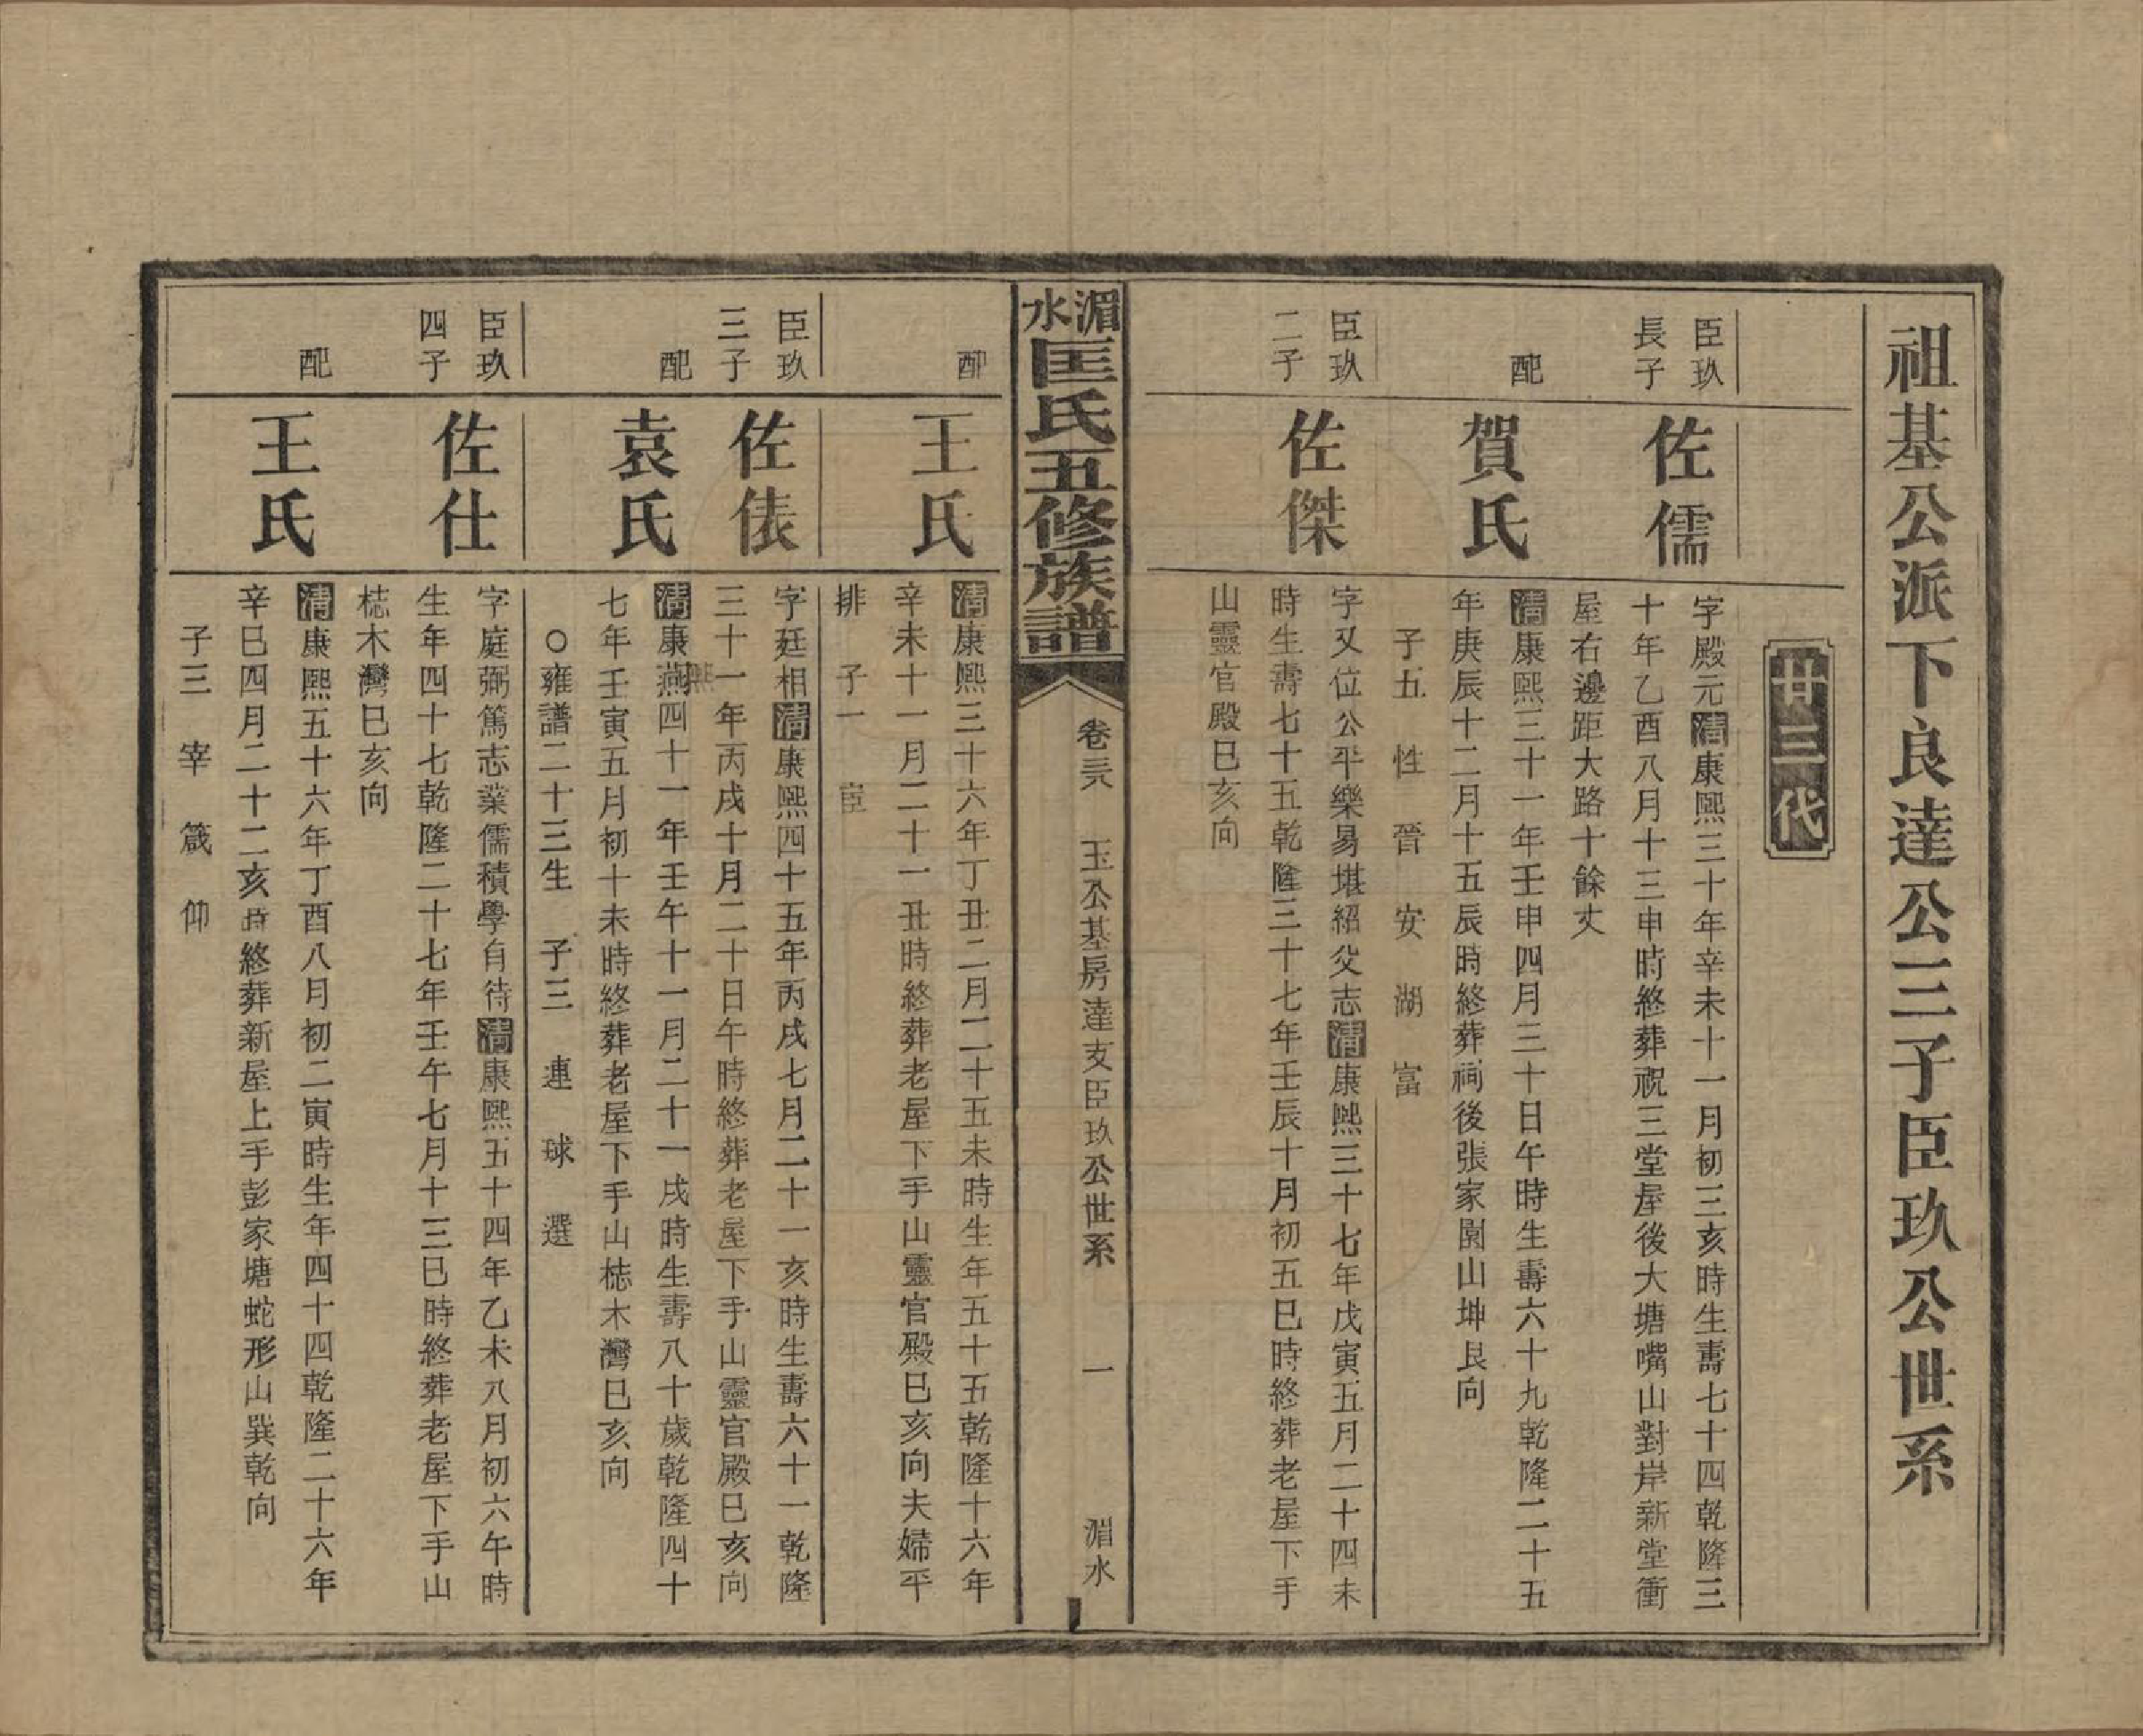 祖基公派下良達公三子臣玖公世系
廿三代
臣玖
長子
佐儒
字殿元清康熙三十年辛未十一月初三亥時生壽七十四乾隆三
十年乙酉八月十三申時終葬祝三堂屋後大塘嘴山對岸新堂衝
屋右邊距大路十餘丈
配
賀氏
清康熙三十一年壬申四月三十日午時生壽六十九乾隆二十五
年庚辰十二月十五辰時終葬祠後張家園山坤艮向
子五 性 晉 安 湖 富
臣玖
二子
佐傑
字又位公平樂易堪紹父志清康熙三十七年戊寅五月二十四未
時生壽七十五乾隆三十七年壬辰十月初五巳時終葬老屋下手
山靈官殿巳亥向
湄水匡氏五修族譜
卷三八 玉公基房達支臣玖公世系 一 湄水
配
王氏
清康熙三十六年丁丑二月二十五未時生年五十五乾隆十六年
辛未十一月二十一丑時終葬老屋下手山靈官殿巳亥向夫婦平
排 子一 宦
臣玖
三子
佐俵
字廷相清康熙四十五年丙戌七月二十一亥時生壽六十一乾隆
三十一年丙戌十月二十日午時終葬老屋下手山靈官殿巳亥向
配
袁氏
清康熙四十一年壬午十一月二十一戌時生壽八十歲乾隆四十
七年壬寅五月初十未時終葬老屋下手山梽木灣巳亥向
○雍譜二十三生 子三 連 球 選
臣玖
四子
佐仕
字庭弼篤志業儒積學自待清康熙五十四年乙未八月初六午時
生年四十七乾隆二十七年壬午七月十三巳時終葬老屋下手山
梽木灣巳亥向
配
王氏
清康熙五十六年丁酉八月初二寅時生年四十四乾隆二十六年
辛巳四月二十二亥時終葬新屋上手彭家塘蛇形山巽乾向
子三 宰 箴 仰